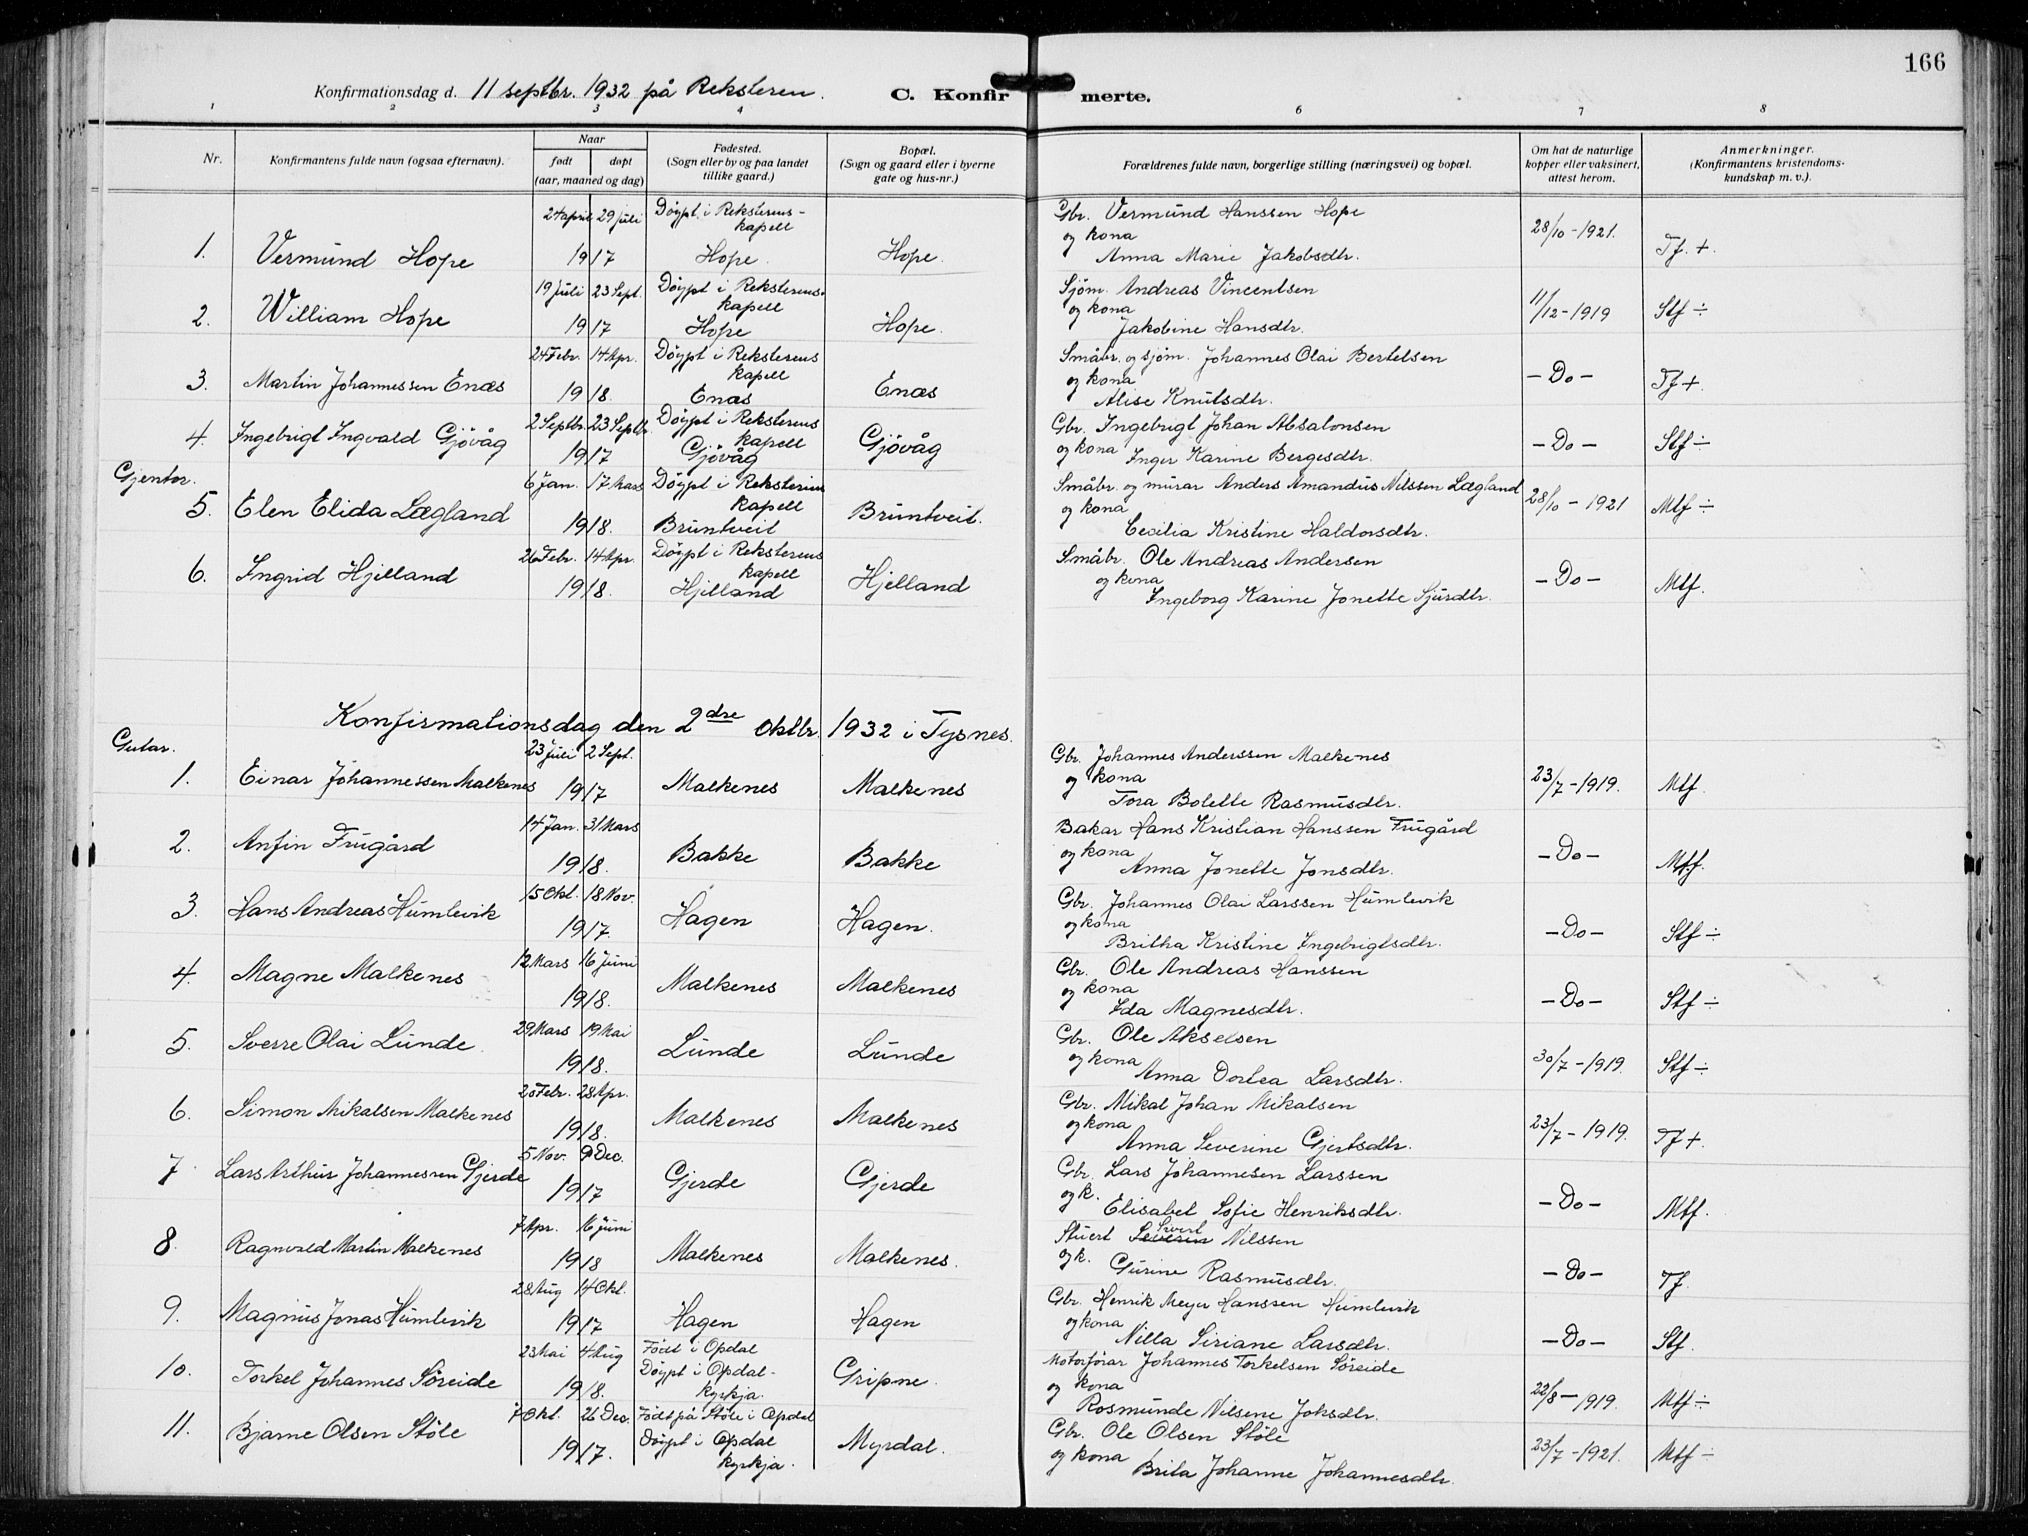 166
Konfirmationsdag d. 11 septbr. 1932 på Reksteren. C. Konfirmerte.
1 2 3 4 6 7 8
Nr. Konfirmantens fulde navn (ogsaa efternavn). Naar født døpt (aar, maaned og dag) Fødested. (Sogn eller by og paa landet tillike gaard.) Bopæl. (Sogn og gaard eller i byerne gate og hus-nr.) Forældrenes fulde navn, borgerlige stilling (næringsvei) og bopæl. Om hat de naturlige kopper eller vaksinert, attest herom. Anmerkninger. (Konfirmantens kristendomskundskap m. v.).
24 april 29 juli Döypt i Reksterens- Gbr. Vermund Hanssen Hope
kapell og kona 28/10-1921.
1. Vermund Hope 1917 Hope. Hope. Anna Marie Jakobsdtr. Tf. +.
19 Juli 23 Sept. Döypt i Reksterens- Sjöm. Andreas Vincentsen
kapell og kona 11/12-1919 Stf ÷
2. William Hope 1917 Hope Hope. Jakobine Hansdtr.
24 Febr. 14 Apr. Döypt i Reksterens Småbr. og sjöm. Johannes Olai Bertelsen
kapell og kona - Do -
3. Martin Johannessen Enæs 1918. Enæs Enæs Alise Knutsdtr. Tf +.
2 Septbr. 23 Septbr Döypt i Reksterens Gbr. Ingebrigt Johan Absalonsen
4. Ingebrigt Ingvald Gjövåg kapell Gjövåg og kona - Do - Stf ÷
1917 Gjövåg Inger Karine Bergesdtr.
Gjentor.
6 Jan. 17 Mars Döypt i Reksterens Småbr. og murar Anders Amandus Nilssen Lægland
5. Elen Elida Lægland kapell Bruntveit. og kona 28/10 - 1921 Mtf ÷
1918. Bruntveit Cecilia Kristine Haldorsdtr.
26 Febr. 14 Apr. Döypt i Reksterens Småbr. Ole Andreas Andersen
6. Ingrid Hjelland kapell Hjelland og kona - Do - Mtf.
1918. Hjelland Ingeborg Karine Jonette Sjursdtr.
Konfirmationsdag den 2dre oktbr 1932 i Tysnes.
Gutar.
23 Juli 2 Sept. Gbr. Johannes Anderssen Malkenes
1. Einar Johannessen Malkenes 1917 Malkenes Malkenes og kona 23/7-1919. Mtf.
Tora Bolette Rasmusdtr.
14 Jan. 31 Mars Bakar Hans Kristian Hanssen Frugård
2. Anfin Frugård 1918. Bakke Bakke og kona - Do - Mtf.
Anna Jonette Jonsdtr.
15 Okt. 18 Nov. Gbr. Johannes Olai Larssen Humlevik
3. Hans Andreas Humlevik 1917. Hagen Hagen. og kona - Do - Stf ÷
Britha Kristine Ingebrigtsdtr.
12 Mars 16 Juni Gbr. Ole Andreas Hanssen
4. Magne Malkenes 1918. Malkenes Malkenes og kona - Do - Stf ÷
Ida Magnesdtr.
29 Mars 19 Mai Gbr. Ole Akselsen
5. Sverre Olai Lunde 1918. Lunde Lunde og kona 30/7-1919. Stf ÷
Anna Dortea Larsdtr.
20 Febr. 28 Apr. Gbr. Mikal Johan Mikalsen
6. Simon Mikalsen Malkenes 1918. Malkenes Malkenes og kona 23/7-1919. Tf +.
Anna Severine Gjertsdtr.
5 Nov. 9 Dec. Gbr. Lars Johannesen Larssen
7 Lars Arthur Johannessen Gjerde 1917 Gjerde Gjerde og k. - Do - Mtf.
Elisabet Sofie Henriksdtr.
7 Apr. 16 Juni Stuert Sivert Nilssen
8. Ragnvald Martin Malkenes 1918 Malkenes Malkenes. og k. - Do - Tf.
Gurine Rasmusdtr.
28 Aug 14 Okt. Gbr. Henrik Meyer Hanssen Humlevik
9. Magnus Jonas Humlevik 1917 Hagen Hagen og kona - Do - Stf.
Nilla Siriane Larsdtr.
23 Mai 4 Aug Födt i Opdal Motorförar Johannes Torkelsen Söreide
10. Torkel Johannes Söreide Döypt i Opdal- Gripne. og kona 22/8-1919. Mtf ÷
1918. kyrkja. Rosmunde Nilsene Joksdtr.
7 Okt. 26 Dec. Födt på Stöle i Opdal Gbr. Ole Olsen Stöle
11. Bjarne Olsen Stöle 1917. Döypt i Opdal Myrdal. og kona 23/7-1921. Mtf ÷
kyrkja. Brita Johanne Johannesdtr.